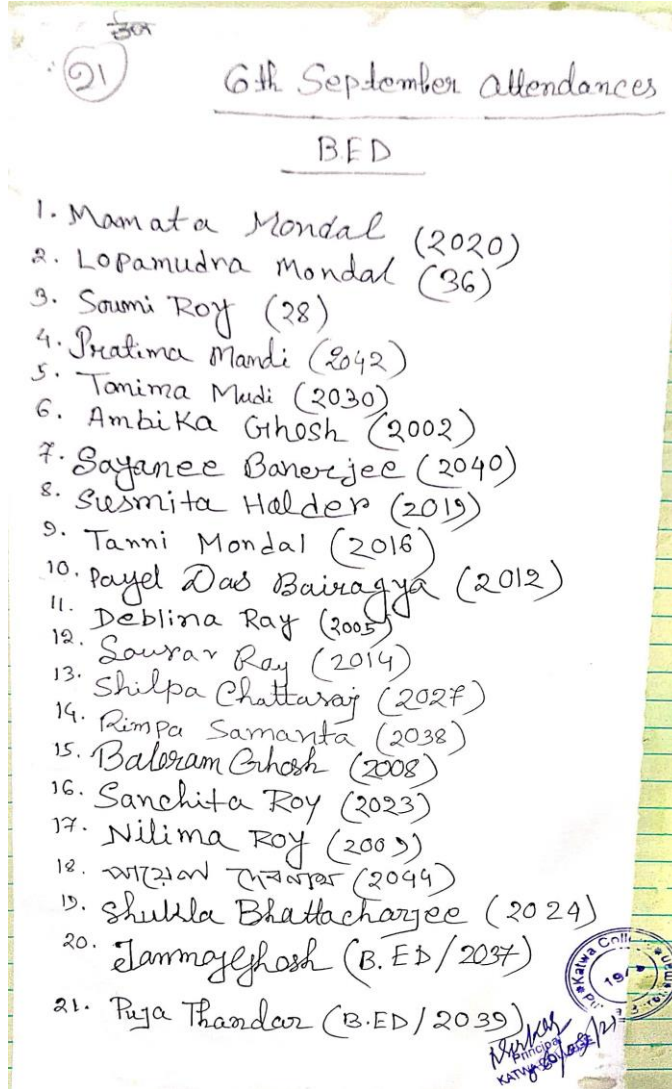 21
6th September Attendances
B.ED
1. Mamata Mondal (2020)
2. Lopamudra Mondal (36)
3. Soumi Roy (28)
4. Pratima Mandi (2042)
5. Tanima Mudi (2030)
6. Ambika Ghosh (2002)
7. Sayanee Banerjee (2040)
8. Susmita Halder (2019)
9. Tanni Mondal (2016)
10. Payel Das Bairagya (2012)
11. Deblina Ray (2005)
12. Sourav Ray (2014)
13. Shilpa Chattaraj (2027)
14. Rimpa Samanta (2038)
15. Baloram Ghosh (2008)
16. Sanchita Roy (2023)
17. Nilima Roy (2009)
18. দেবনাথ (2044)
19. Shukla Bhattacharjee (2024)
20. Tanmoy Ghosh (B.ED/2037)
21. Puja Thandar (B.ED/2039)
Katwa
Principal
KATWA COLLEGE